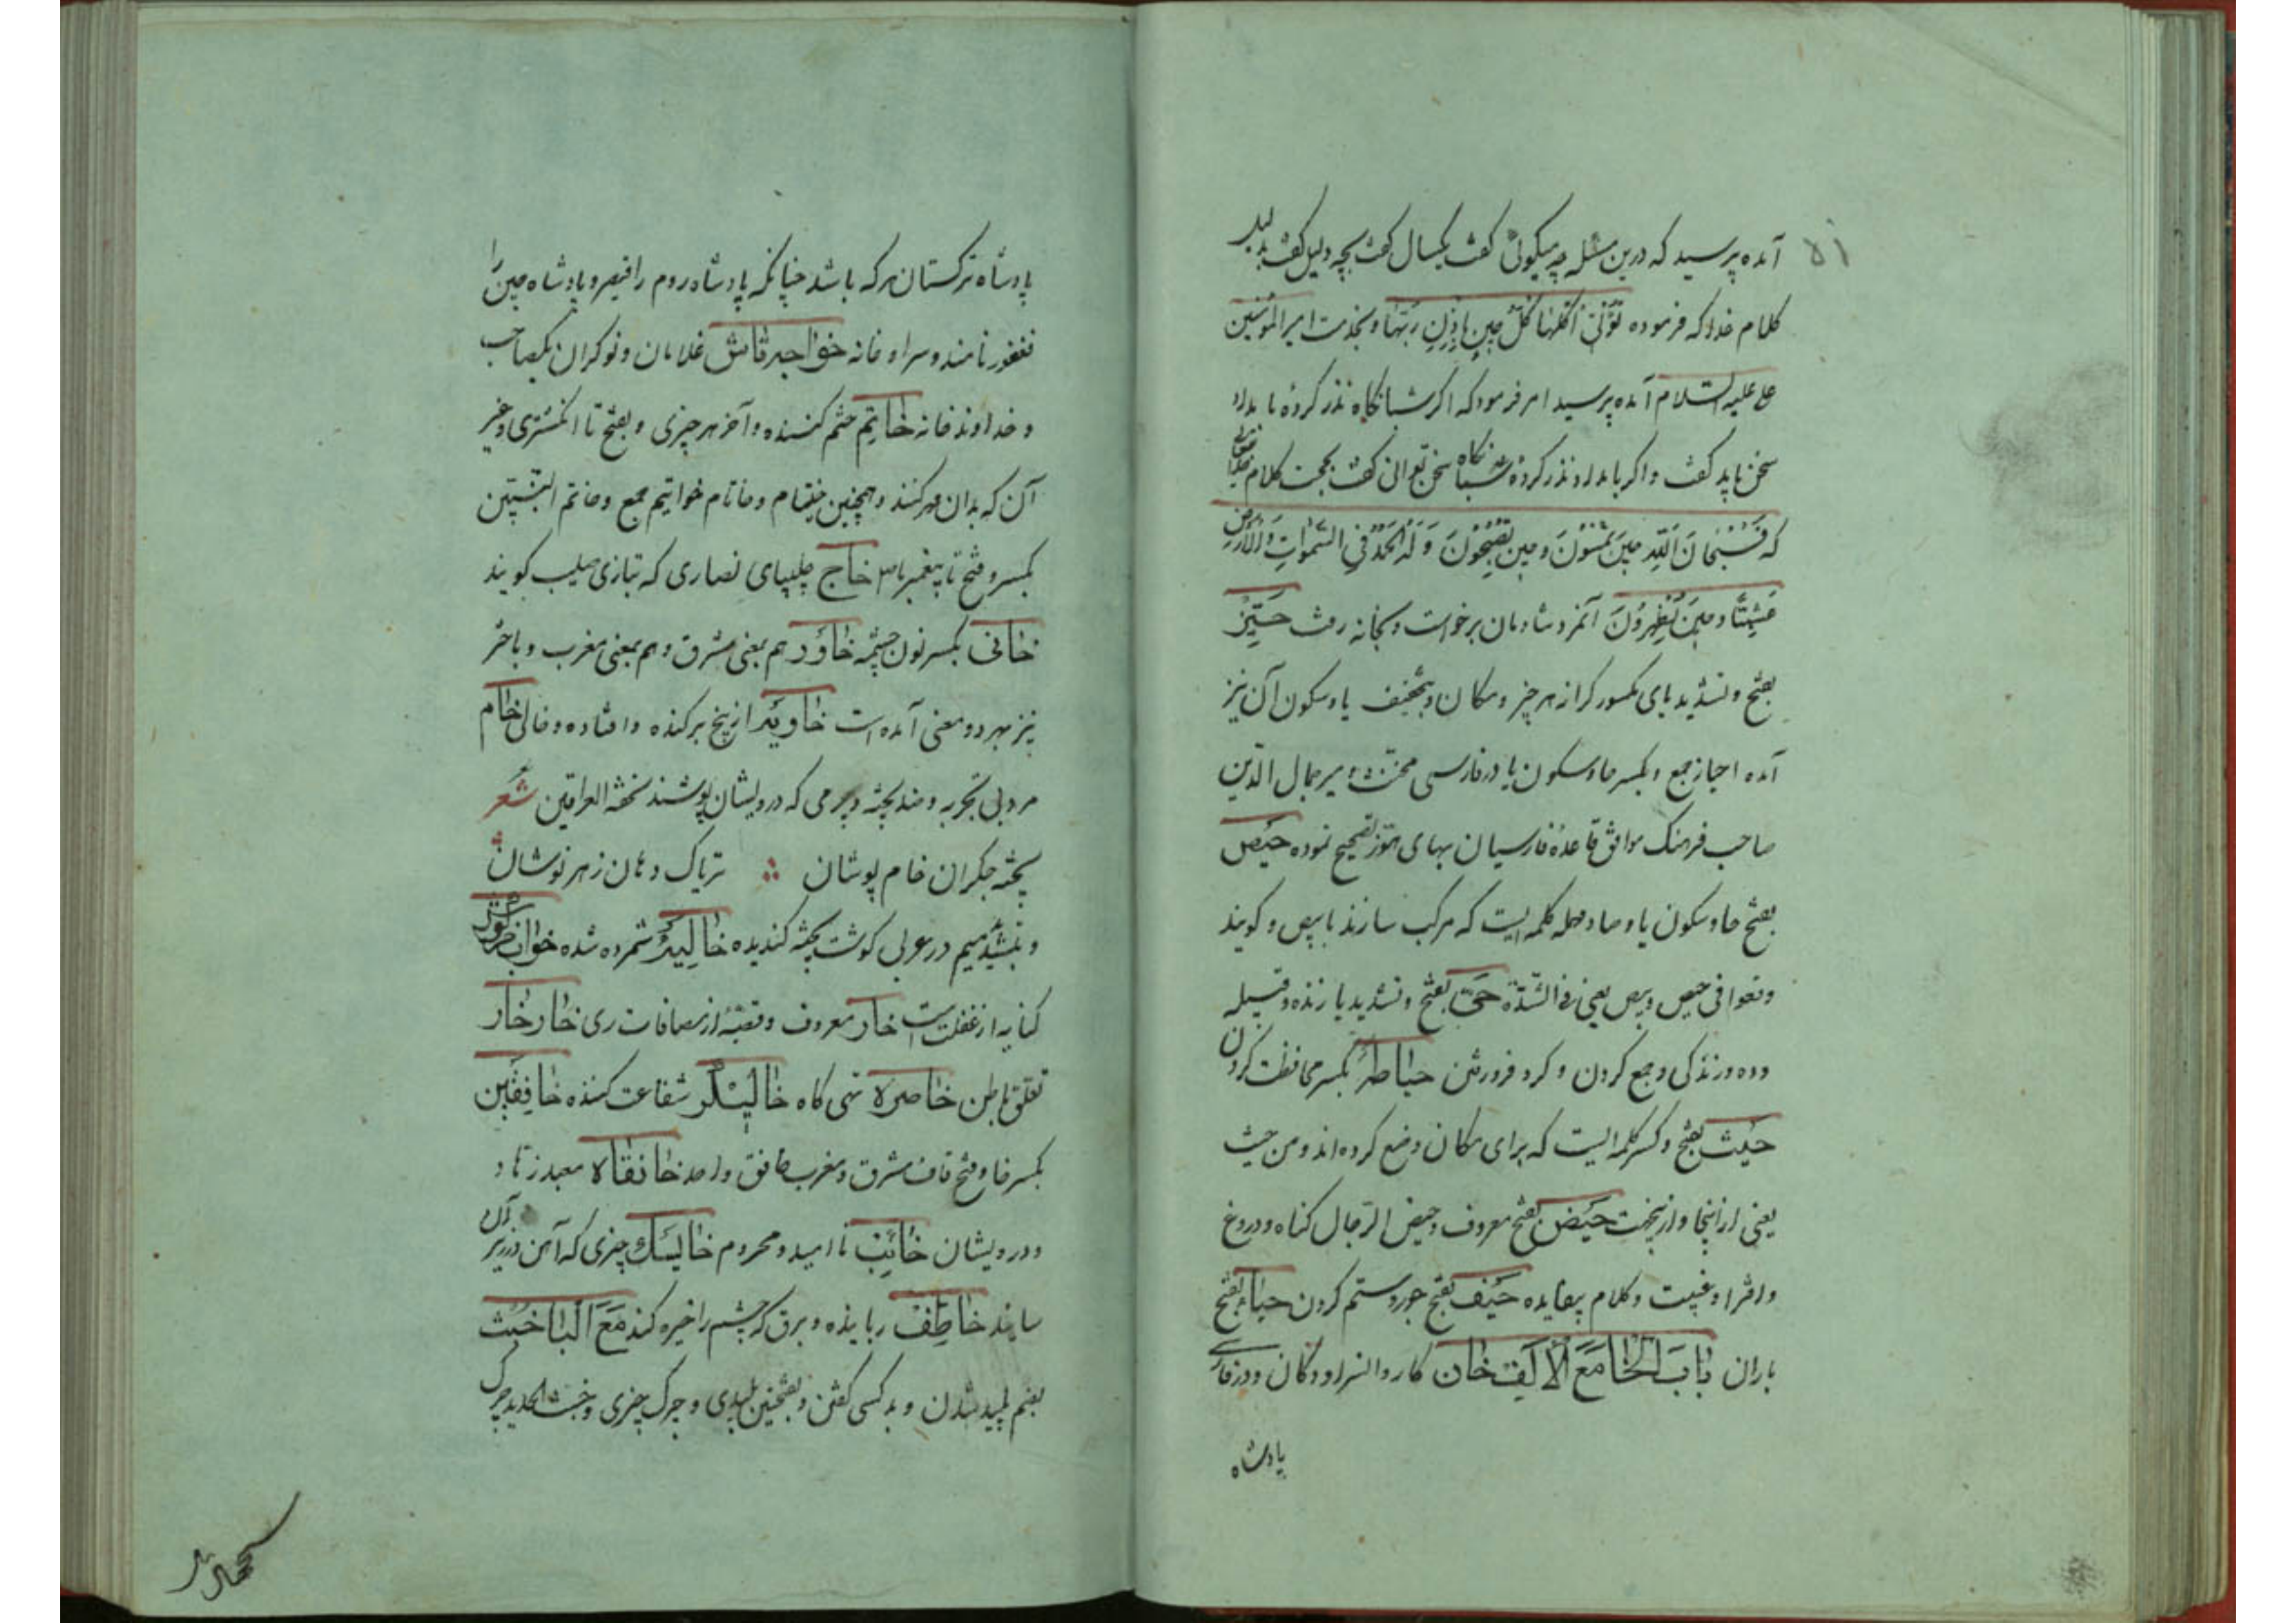 ۵۱
آمده پرسید که درین مسئله چه میکوئی کفت یکسال کفت بچه دلیل کفت بدلیل
کلام خدا که فرموده تُؤْتی اُکُلَها کُلَّ حِینٍ بِاِذْنِ رَبِّها و بخدمت امیر المؤمنین
علی علیه السلام آمده پرسید امر فرمود که اکر شبانکاه نذر کردهٔ بامداد
سخن باید کفت و اکر بامداد نذر کردهٔ شبانکاه سخن توانی کفت بحجت کلام خدایتعالی
که فَسُبْحانَ اللّهِ حِینَ تُمْسُونَ و حِینَ تُصْبِحُونَ وَ لَهُ الْحَمْدُ فِی السَّمٰواتِ وَالْاَرْضِ
عَشِیًّا و حِینَ تُظْهِرُونَ آنمرد شادمان برخواست و بخانه رفت حَیِّز
بفتح و تشدید یای مکسور کرانه هر چیز و مکان و بتخفیف یا و سکون آن نیز
آمده احیاز جمع و بکسر حا و سکون یا در فارسی مخنث و میر جمال الدین
صاحب فرهنک موافق قاعدهٔ فارسیان بهای هوز تصحیح نموده حَیْص
بفتح حا و سکون یا و صاد مهمله کلمه ایست که مرکب سازند با بیص و کویند
وقعوا فی حیص و بیص یعنی فی الشدّة حَیّ بفتح و تشدید یا زنده و قبیله
و ده و زندکی و جمع کردن و کرد فرورفتن حیاطه بکسر محافظت کردن
حَیْث بفتح و کسر کلمه ایست که برای مکان وضع کرده اند و من حیث
یعنی از اینجا و ازینجهت حَیْض بفتح معروف و حیض الرجال کناه و دروغ
و افترا و غیبت و کلام بیفایده حَیْف بفتح جور و ستم کردن حیا بفتح
باران بابَ الخا مَعَ الْاَلِف خان کاروانسرا و دکان و در فارسی
پادشاه
پادشاه ترکستان هر که باشد چنانکه پادشاه روم را قیصر و پادشاه چین را
فغفور نامند و سرا و خانه خواجه تاش غلامان و نوکران یکصاحب
و خداوند خانه خاتِم ختم کننده و آخر هر چیزی و بفتح تا انکشتری و غیر
آن که بدان مهر کنند و همچنین خیتام و خاتام خواتیم جمع و خاتم النبیین
بکسر و فتح تا پیغمبر ما خاج چلیپای نصاری که بتازی صلیب کویند
خانی بکسر نون چشمه خاوَر هم بمعنی مشرق و هم بمعنی مغرب و باختر
نیز بهر دو معنی آمده است خاویَه از بیخ برکنده و افتاده و خالی خام
مرد بی تجربه و ضد پخته و چرمی که درویشان پوشند تحفة العراقین شعر
پخته جکران خام پوشان تریاک دهان زهر نوشان
و بتشدید میم در عربی کوشت پخته کندیده خالیده شمرده شده خواب خرکوش
کنایه از غفلت است خار معروف و قصبهٔ از مضافات ری خار خار
تعلق باطن خاصره تهی کاه خالیشکر شفاعت کننده خافِقَین
بکسر فا و فتح قاف مشرق و مغرب خافق واحد خانقاه معبد زهاد
و درویشان خائِب نا امید و محروم خایسک چیزی که آهن در زیر آن
سایند خاطِف رباینده و برق که چشم را خیره کند مَعَ الْبا خبث
بضم پلید شدن و بد کسی کفتن و بفتحین پلیدی و چرک چیزی و خبث الحدید چرک